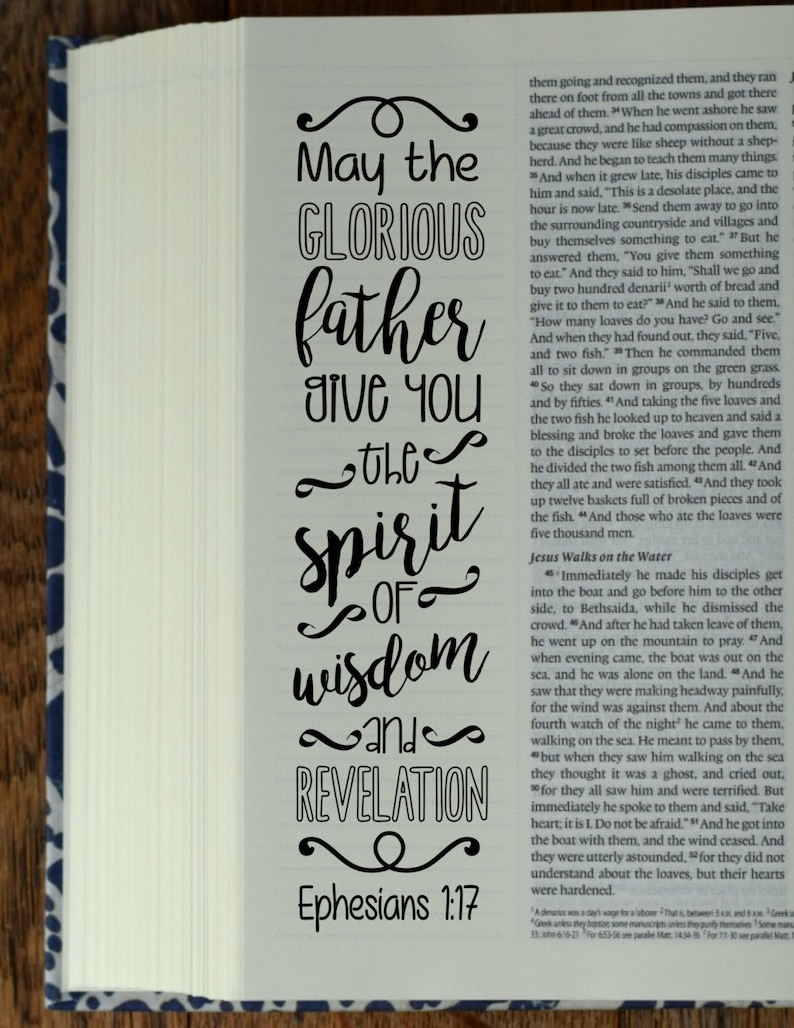 May the
GLORIOUS
father
give you
the
spirit
OF
wisdom
and
REVELATION
Ephesians 1:17
them going and recognized them, and they ran
there on foot from all the towns and got there
ahead of them. 34 When he went ashore he saw
a great crowd, and he had compassion on them,
because they were like sheep without a shep-
herd. And he began to teach them many things.
35 And when it grew late, his disciples came to
him and said, "This is a desolate place, and the
hour is now late. 36 Send them away to go into
the surrounding countryside and villages and
buy themselves something to eat." 37 But he
answered them, "You give them something
to eat." And they said to him, "Shall we go and
buy two hundred denarii¹ worth of bread and
give it to them to eat?" 38 And he said to them,
"How many loaves do you have? Go and see."
And when they had found out, they said, "Five,
and two fish." 39 Then he commanded them
all to sit down in groups on the green grass.
40 So they sat down in groups, by hundreds
and by fifties. 41 And taking the five loaves and
the two fish he looked up to heaven and said a
blessing and broke the loaves and gave them
to the disciples to set before the people. And
he divided the two fish among them all. 42 And
they all ate and were satisfied. 43 And they took
up twelve baskets full of broken pieces and of
the fish. 44 And those who ate the loaves were
five thousand men.
Jesus Walks on the Water
45 Immediately he made his disciples get
into the boat and go before him to the other
side, to Bethsaida, while he dismissed the
crowd. 46 And after he had taken leave of them,
he went up on the mountain to pray. 47 And
when evening came, the boat was out on the
sea, and he was alone on the land. 48 And he
saw that they were making headway painfully,
for the wind was against them. And about the
fourth watch of the night² he came to them,
walking on the sea. He meant to pass by them,
49 but when they saw him walking on the sea
they thought it was a ghost, and cried out,
50 for they all saw him and were terrified. But
immediately he spoke to them and said, "Take
heart; it is I. Do not be afraid." 51 And he got into
the boat with them, and the wind ceased. And
they were utterly astounded, 52 for they did not
understand about the loaves, but their hearts
were hardened.
¹ A denarius was a day's wage for a laborer ² That is, between 3 A.M. and 6 A.M. ³ Greek
⁴ Greek unless they baptize; some manuscripts unless they purify themselves ⁵ Some
33; John 6:16-21 For 6:53-56 see parallel Matt. 14:34-36 For 7:1-30 see parallel Matt.